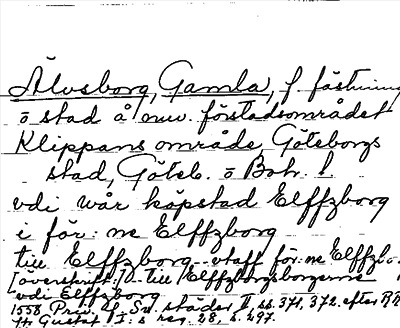 Älvsborg, Gamla, f fästning
o stad å nuv. förstadsområdet
Klippans område, Göteborgs
stad, Göteb. o Boh. l
vdi wår köpstad Elffzborg
i för: ne Elffzborg
till Elffzborg vtaff för: ne Elffzbo
[överskrift:] till Elffzborgsborgerne
vdi Elffzborg
1558 Priv. Sv. städer II ss. 371, 372. efter RR
Gustaf I:s reg. 28, s. 297.